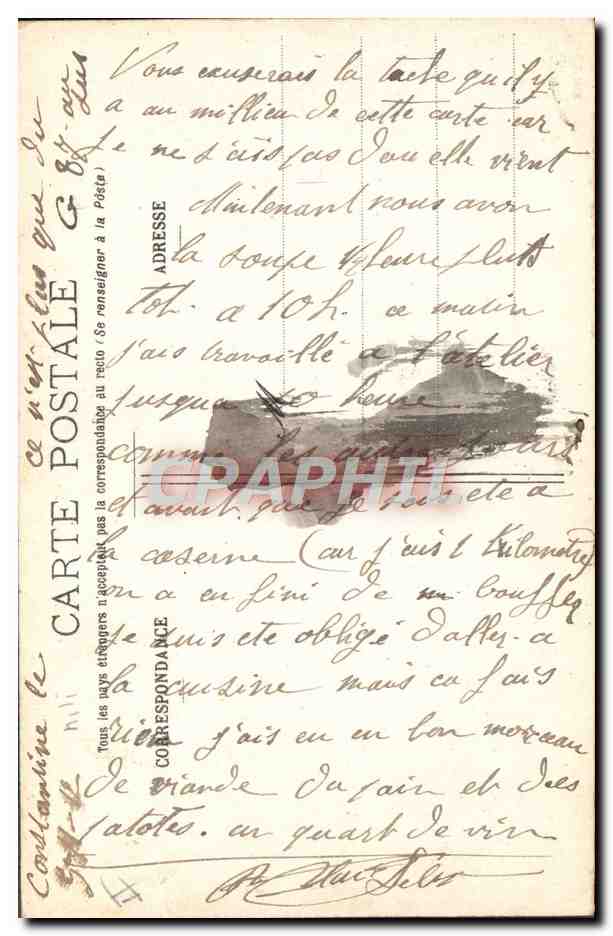 Constantine le
ce n'est plus que du
G 87 au jus
CARTE POSTALE
Tous les pays étrangers n'acceptent pas la correspondance au recto (Se renseigner à la Poste)
CORRESPONDANCE
ADRESSE
Vous excuserais la tache quil y
a au millieu de cette carte car
je ne sais pas dou elle vient
Maintenant nous avon
la soupe 1/2 heure plus
tot. a 10h. ce matin
j'ais travaillé a l'atelier
jusqua 10 heure
comme les autres jours
et avant que je sois ete a
la caserne (car j'ais 1 Kilometre)
on a en fini de bouffer
je suis ete obligé d'aller a
la cuisine mais ca fais
rien j'ais eu un bon morceau
de viande du pain et des
patates. un quart de vin
CPARHTI